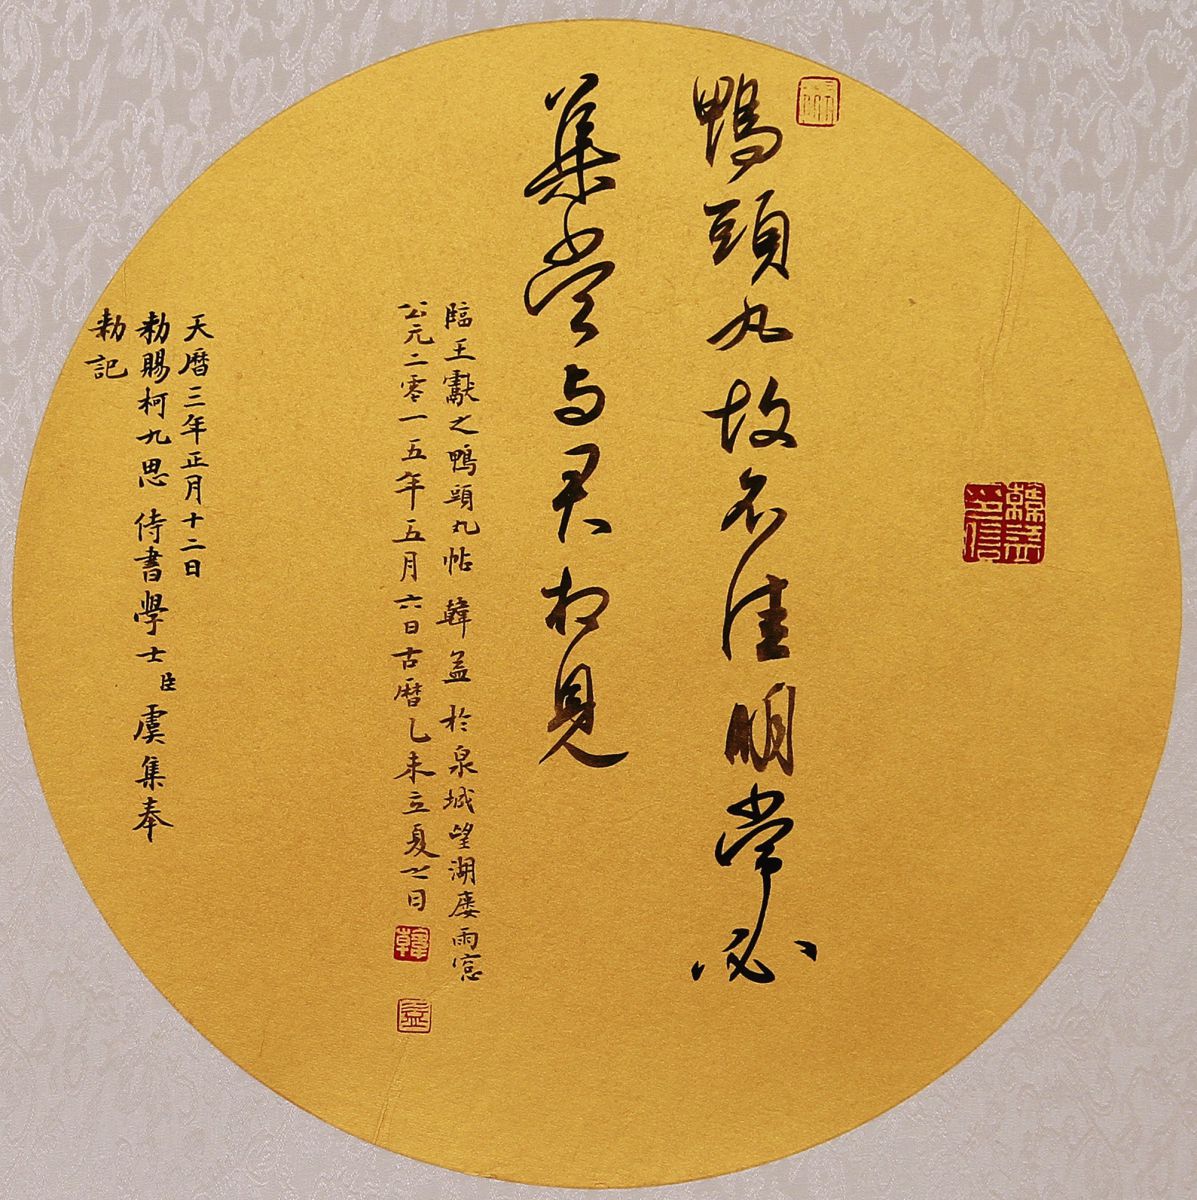 鴨頭丸故不佳明當必
集當與君相見
臨王獻之鴨頭丸帖 韓益 於泉城望湖廔雨窓
公元二零一五年五月六日古曆乙未立夏之日
天曆三年正月十二日
勑賜柯九思 侍書學士臣虞集奉
勑記
韓
益
韓益之信